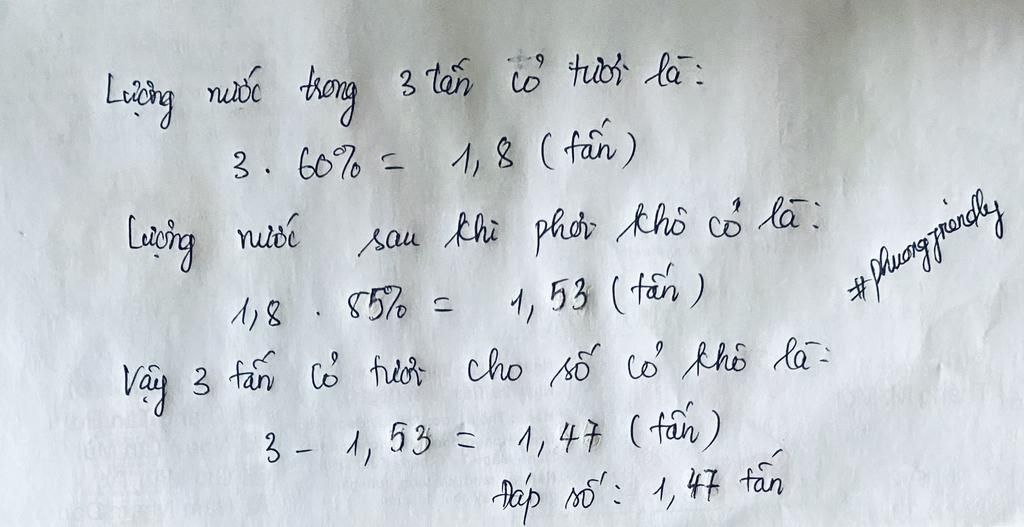 Lượng nước trong 3 tấn cỏ tươi là:
3 . 60% = 1,8 (tấn)
Lượng nước sau khi phơi khô cỏ là:
1,8 . 85% = 1,53 (tấn)
#phuongfriendly
Vậy 3 tấn cỏ tươi cho số cỏ khô là:
3 - 1,53 = 1,47 (tấn)
Đáp số: 1,47 tấn